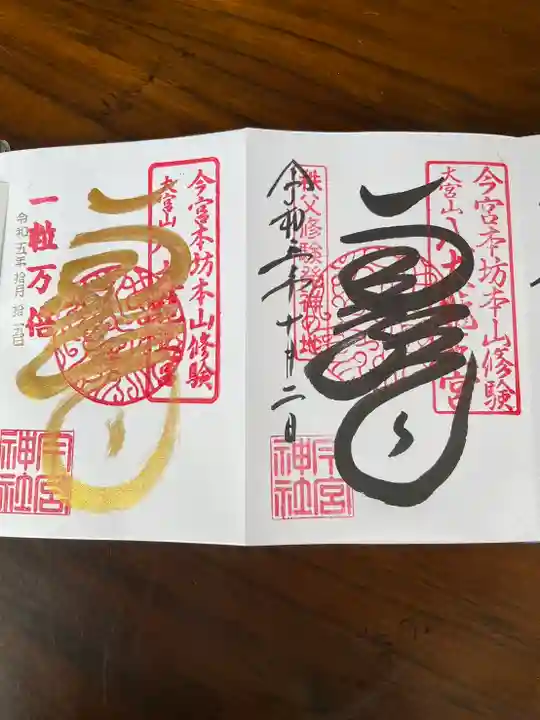 今宮本坊本山修験
大宮山八大龍王宮
秩父修験発祥の地
令和五年十月二日
今宮
神社
今宮本坊本山修験
大宮山八大龍王宮
一粒万倍
令和五年拾月拾五日
今宮
神社